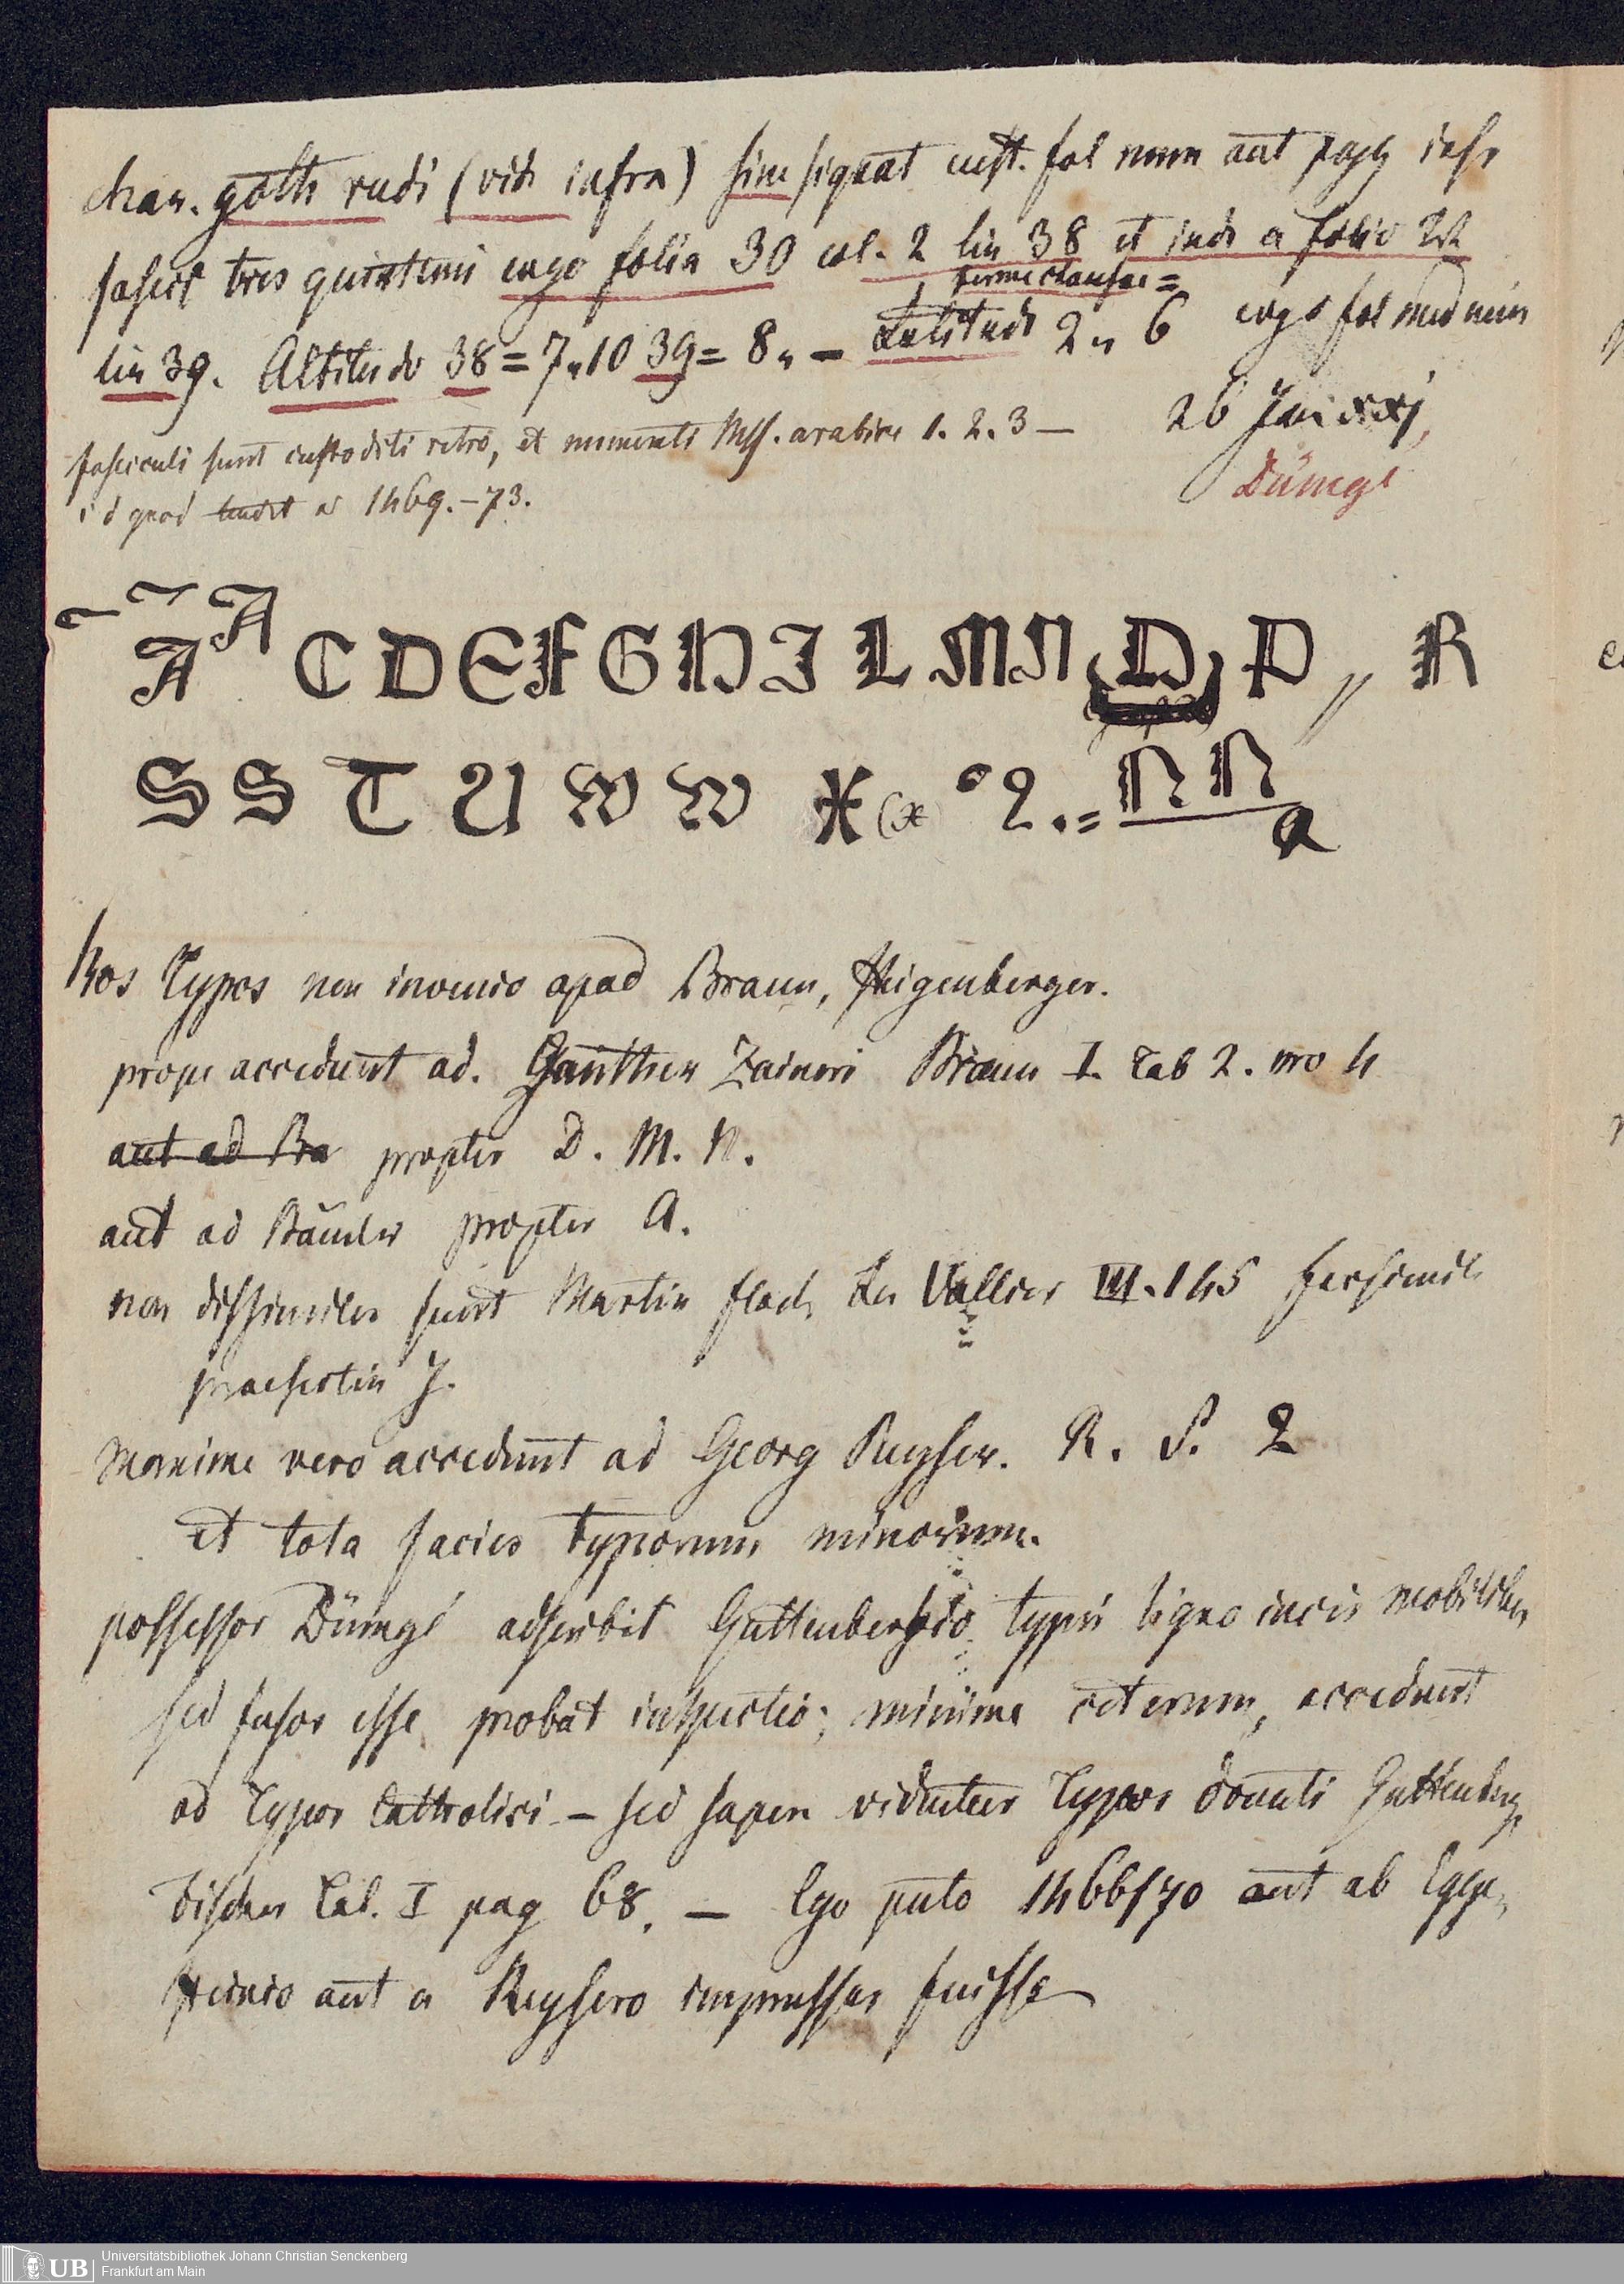 char. goth rudi (vid infra) sine signat cust. fol num aut pagg
fascic tres quinterni ergo folia 30 col. 2 lin 38 et inde a folio 22
lin 39. Altitudo 38 = 7„10 39 = 8„ – Latitudo 2„ 6 ergo fol med
fasciculi sunt custoditi retro, et numerati Mss. arabice 1. 2. 3 –
26 Jun xxj
Dümgé
id quod a 1469.–73.
A A C D E F G H I L M N (D) P „ R
S S T U W W X (x) 2. =
hos Typos non invenio apud Braun,
prope accedunt ad. Gunther Zaineri Braun I. Tab 2. nro 4
aut ad Bra propter D. M. N.
aut ad Bämler propter A.
non dissimiles sunt Martin flach La Vallier III. 145 facsimile
praesertim J.
Maxime vero accedunt ad Georg Reyser. R. S. 2
et tota facies typorum minorum.
possessor Dümgé adscribit Guttenbergio typis ligno incis mobilibus
sed fusos esse probat inspectio; minime ceterum, accedunt
ad Typos Catholici – sed sapere videntur Typos donati Guttenberg
Fischer Tab. I pag 68. – Ego puto 1466/70 aut ab Egge-
steinio aut a Reysero impressas fuisse
Universitätsbibliothek Johann Christian Senckenberg
Frankfurt am Main
UB